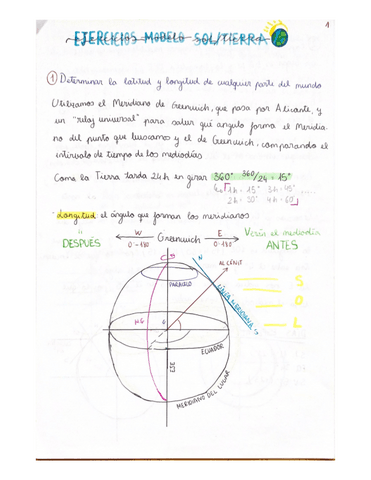 EJERCICIOS MODELO SOL/TIERRA
1
① Determinar la latitud y longitud de cualquier parte del mundo
Utilizamos el Meridiano de Greenwich, que pasa por Alicante, y
un "reloj universal" para saber qué ángulo forma el Meridia-
no del punto que buscamos y el de Greenwich, comparando el
intervalo de tiempo de los mediodías
Como la Tierra tarda 24h en girar 360° 360/24 = 15°
1h = 15° 3h = 45°
2h = 30° 4h = 60
Longitud: el ángulo que forman los meridianos
DESPUÉS
W
0-180
Greenwich
E
0-180
Verán el mediodía
ANTES
N
AL CÉNIT
PARALELO
LÍNEA MERIDIANA
S
O
L
MG
ECUADOR
EJE
MERIDIANO DEL LUGAR